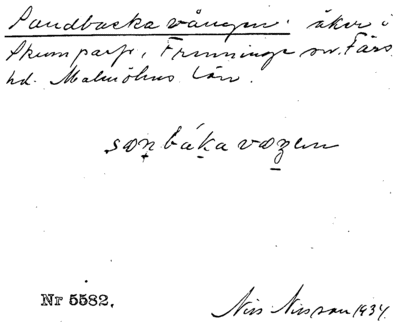 Sandbacka vången. åker i
Skumparp, Frenninge sn. Färs
hd. Malmöhus län.
Nr 5582.
Nils Nilsson 1934.